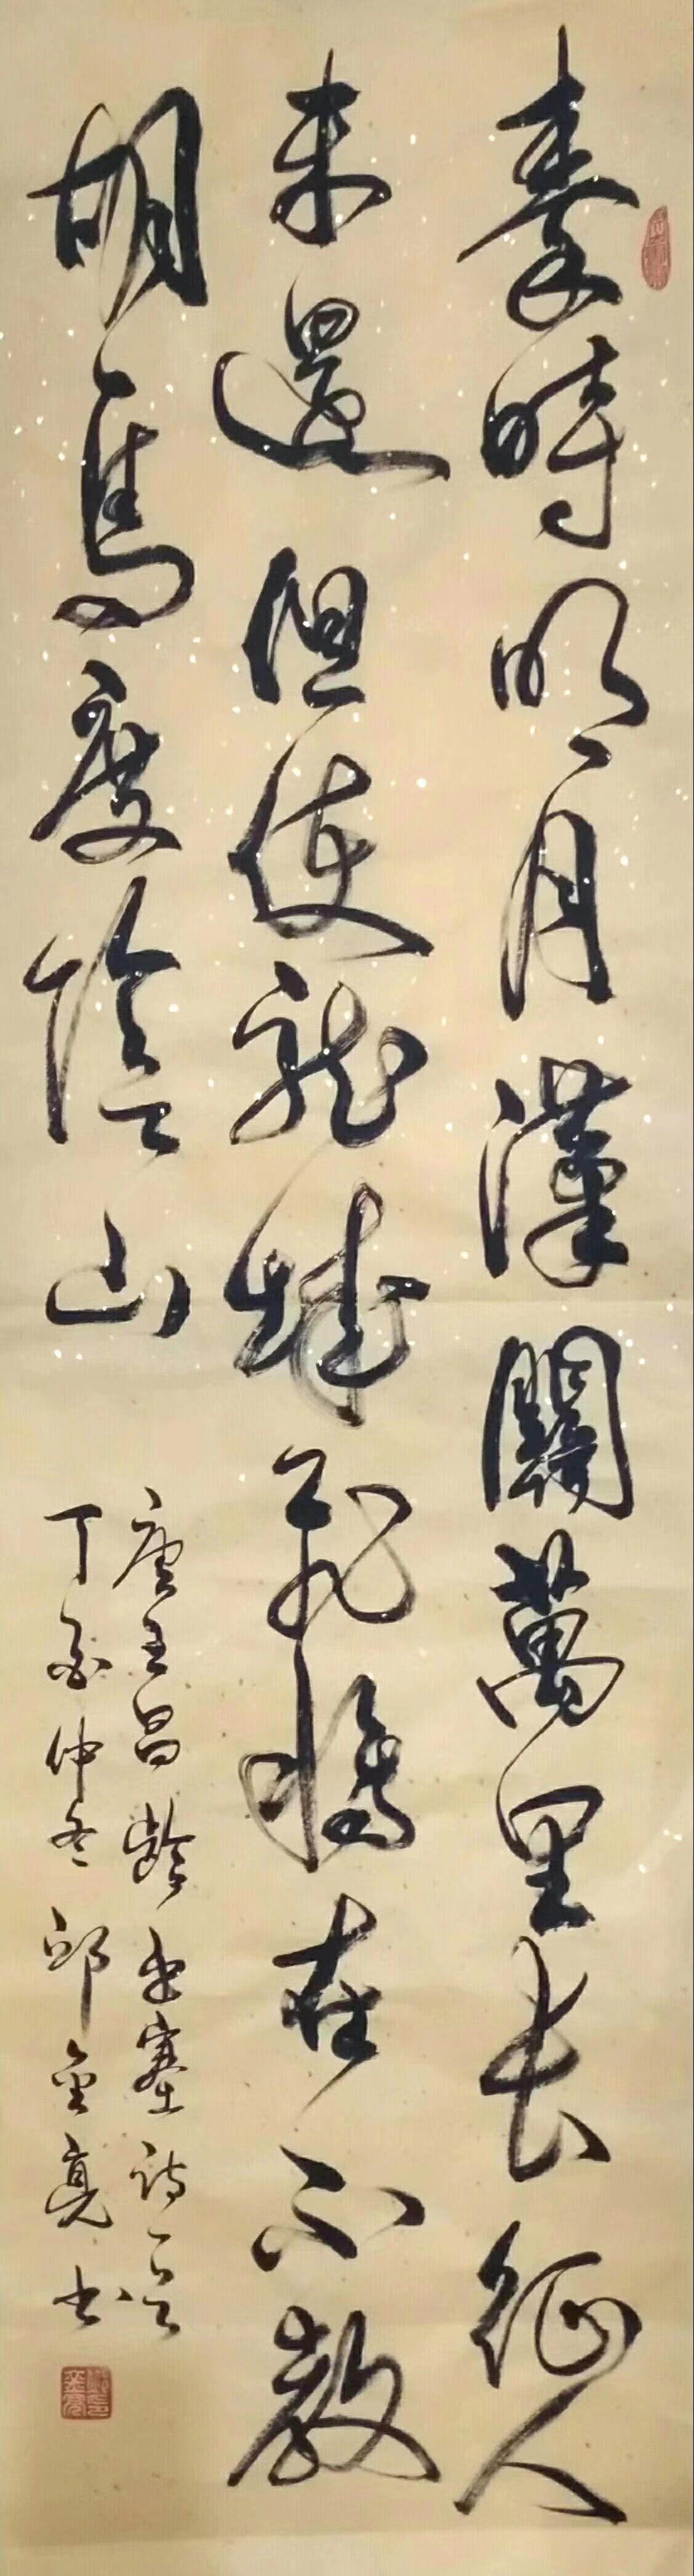 秦時明月漢關萬里長征人
未還但使龍城飛將在不教
胡馬度陰山
唐王昌齡出塞詩一首
丁酉仲冬邱金亮书